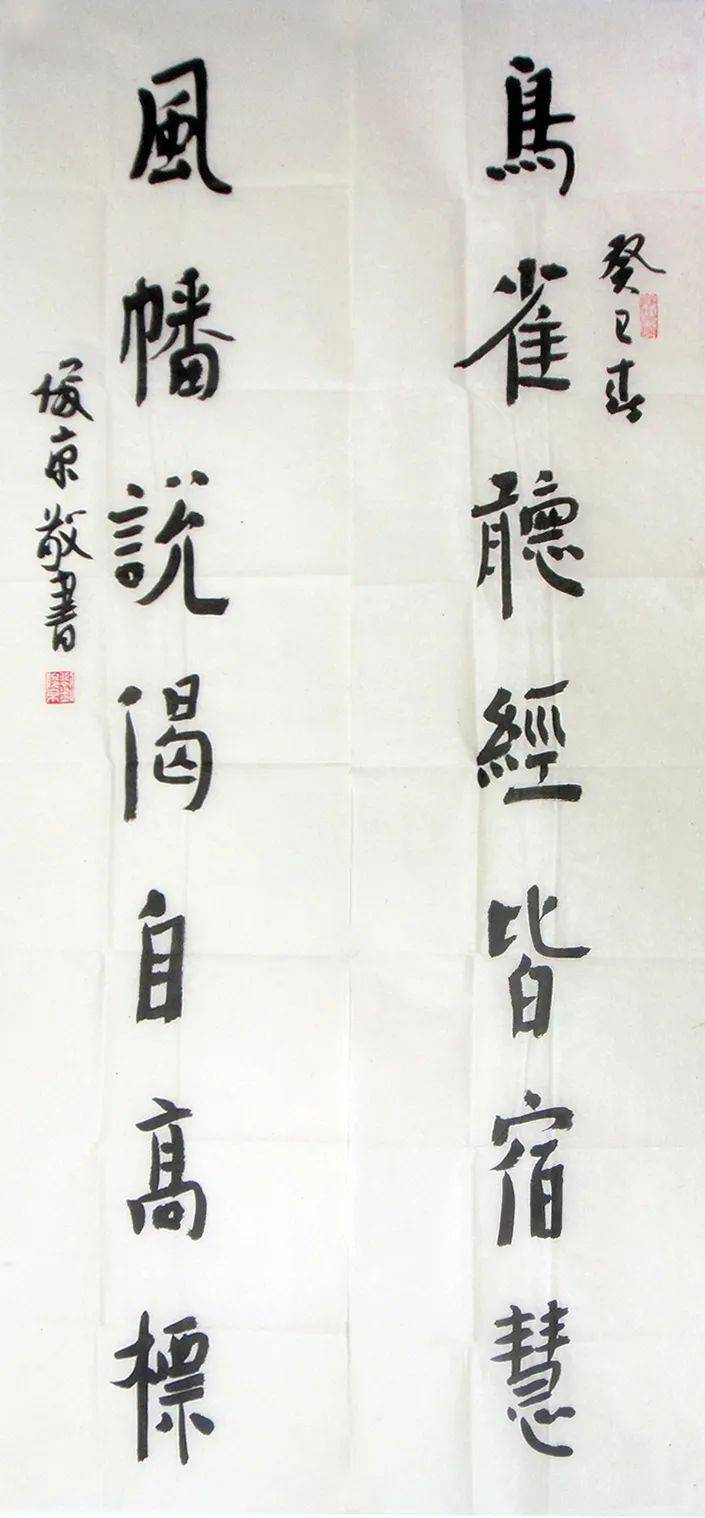 癸巳春
鳥雀聽經皆宿慧
風幡說偈自高標
京敬書